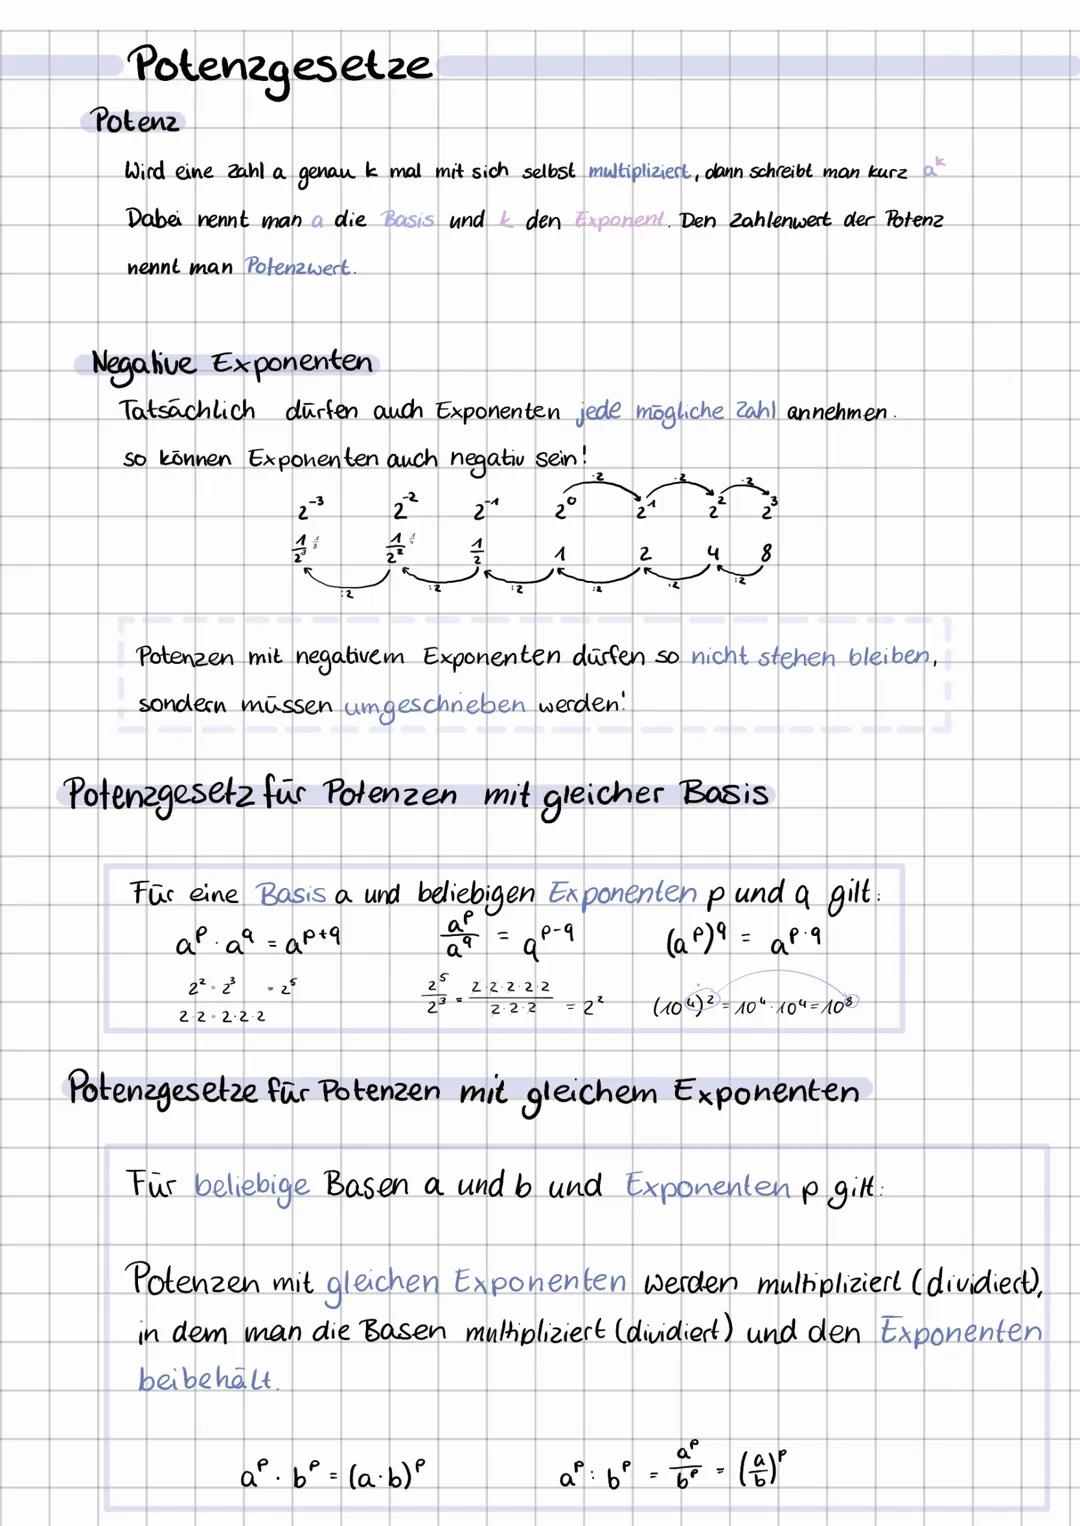 Potenzgesetze
Potenz
Wird eine Zahl a genau k mal mit sich selbst multipliziert, dann schreibt man kurz a^k
Dabei nennt man a die Basis und k den Exponent. Den Zahlenwert der Potenz
nennt man Potenzwert.
Negative Exponenten
Tatsächlich dürfen auch Exponenten jede mögliche Zahl annehmen.
so können Exponenten auch negativ sein!
·2 ·2 ·2
2^-3 2^-2 2^-1 2^0 2^1 2^2 2^3
1/2^3 1/2^2 1/2 1 2 4 8
:2 :2 :2 :2 :2 :2
Potenzen mit negativem Exponenten dürfen so nicht stehen bleiben,
sondern müssen umgeschrieben werden!
Potenzgesetz für Potenzen mit gleicher Basis
Für eine Basis a und beliebigen Exponenten p und q gilt:
a^p · a^q = a^p+q a^p/a^q = a^p-q (a^p)^q = a^p·q
2² · 2³ = 2⁵ 2⁵/2³ = 2·2·2·2·2/2·2·2 = 2² (10⁴)² = 10⁴·10⁴=10⁸
2·2·2·2·2
Potenzgesetze für Potenzen mit gleichem Exponenten
Für beliebige Basen a und b und Exponenten p gilt:
Potenzen mit gleichen Exponenten werden multipliziert (dividiert),
in dem man die Basen multipliziert (dividiert) und den Exponenten
beibehält.
a^p · b^p = (a·b)^p a^p : b^p = a^p/b^p = (a/b)^p